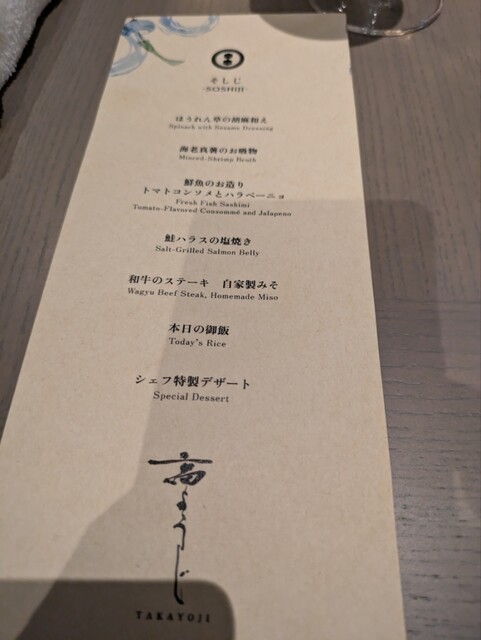 そしじ
-SOSHIJI-
ほうれん草の胡麻和え
Spinach with Sesame Dressing
海老真薯のお吸物
Minced-Shrimp Broth
鮮魚のお造り
トマトコンソメとハラペーニョ
Fresh Fish Sashimi
Tomato-Flavored Consommé and Jalapeno
鮭ハラスの塩焼き
Salt-Grilled Salmon Belly
和牛のステーキ　自家製みそ
Wagyu Beef Steak, Homemade Miso
本日の御飯
Today's Rice
シェフ特製デザート
Special Dessert
高ようじ
TAKAYOJI